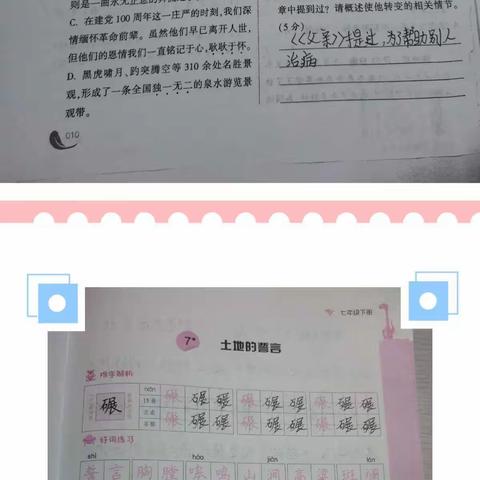 则是一曲永无止息的
C. 在建党 100 周年这一庄严的时刻,我们深
情缅怀革命前辈。虽然他们早已离开人世,
但他们的恩情我们一直铭记于心,耿耿于怀。
D. 黑虎啸月、趵突腾空等 310 余处名胜景
观,形成了一条全国独一无二的泉水游览景
观带。
010
章中提到过?请概述使他转变的相关情节。
(5 分)
《父亲》提过,为了帮助别人
治病
七年级下册
7*
土地的誓言
难字解析
niǎn
碾 碾 碾 碾 碾 碾 碾 碾 碾 碾
15 画
碾 碾 碾 碾 碾 碾 碾 碾 碾
好词练习
shì háo jiàn
誓言 胸膛 嚎鸣 山涧 高粱 斑斓